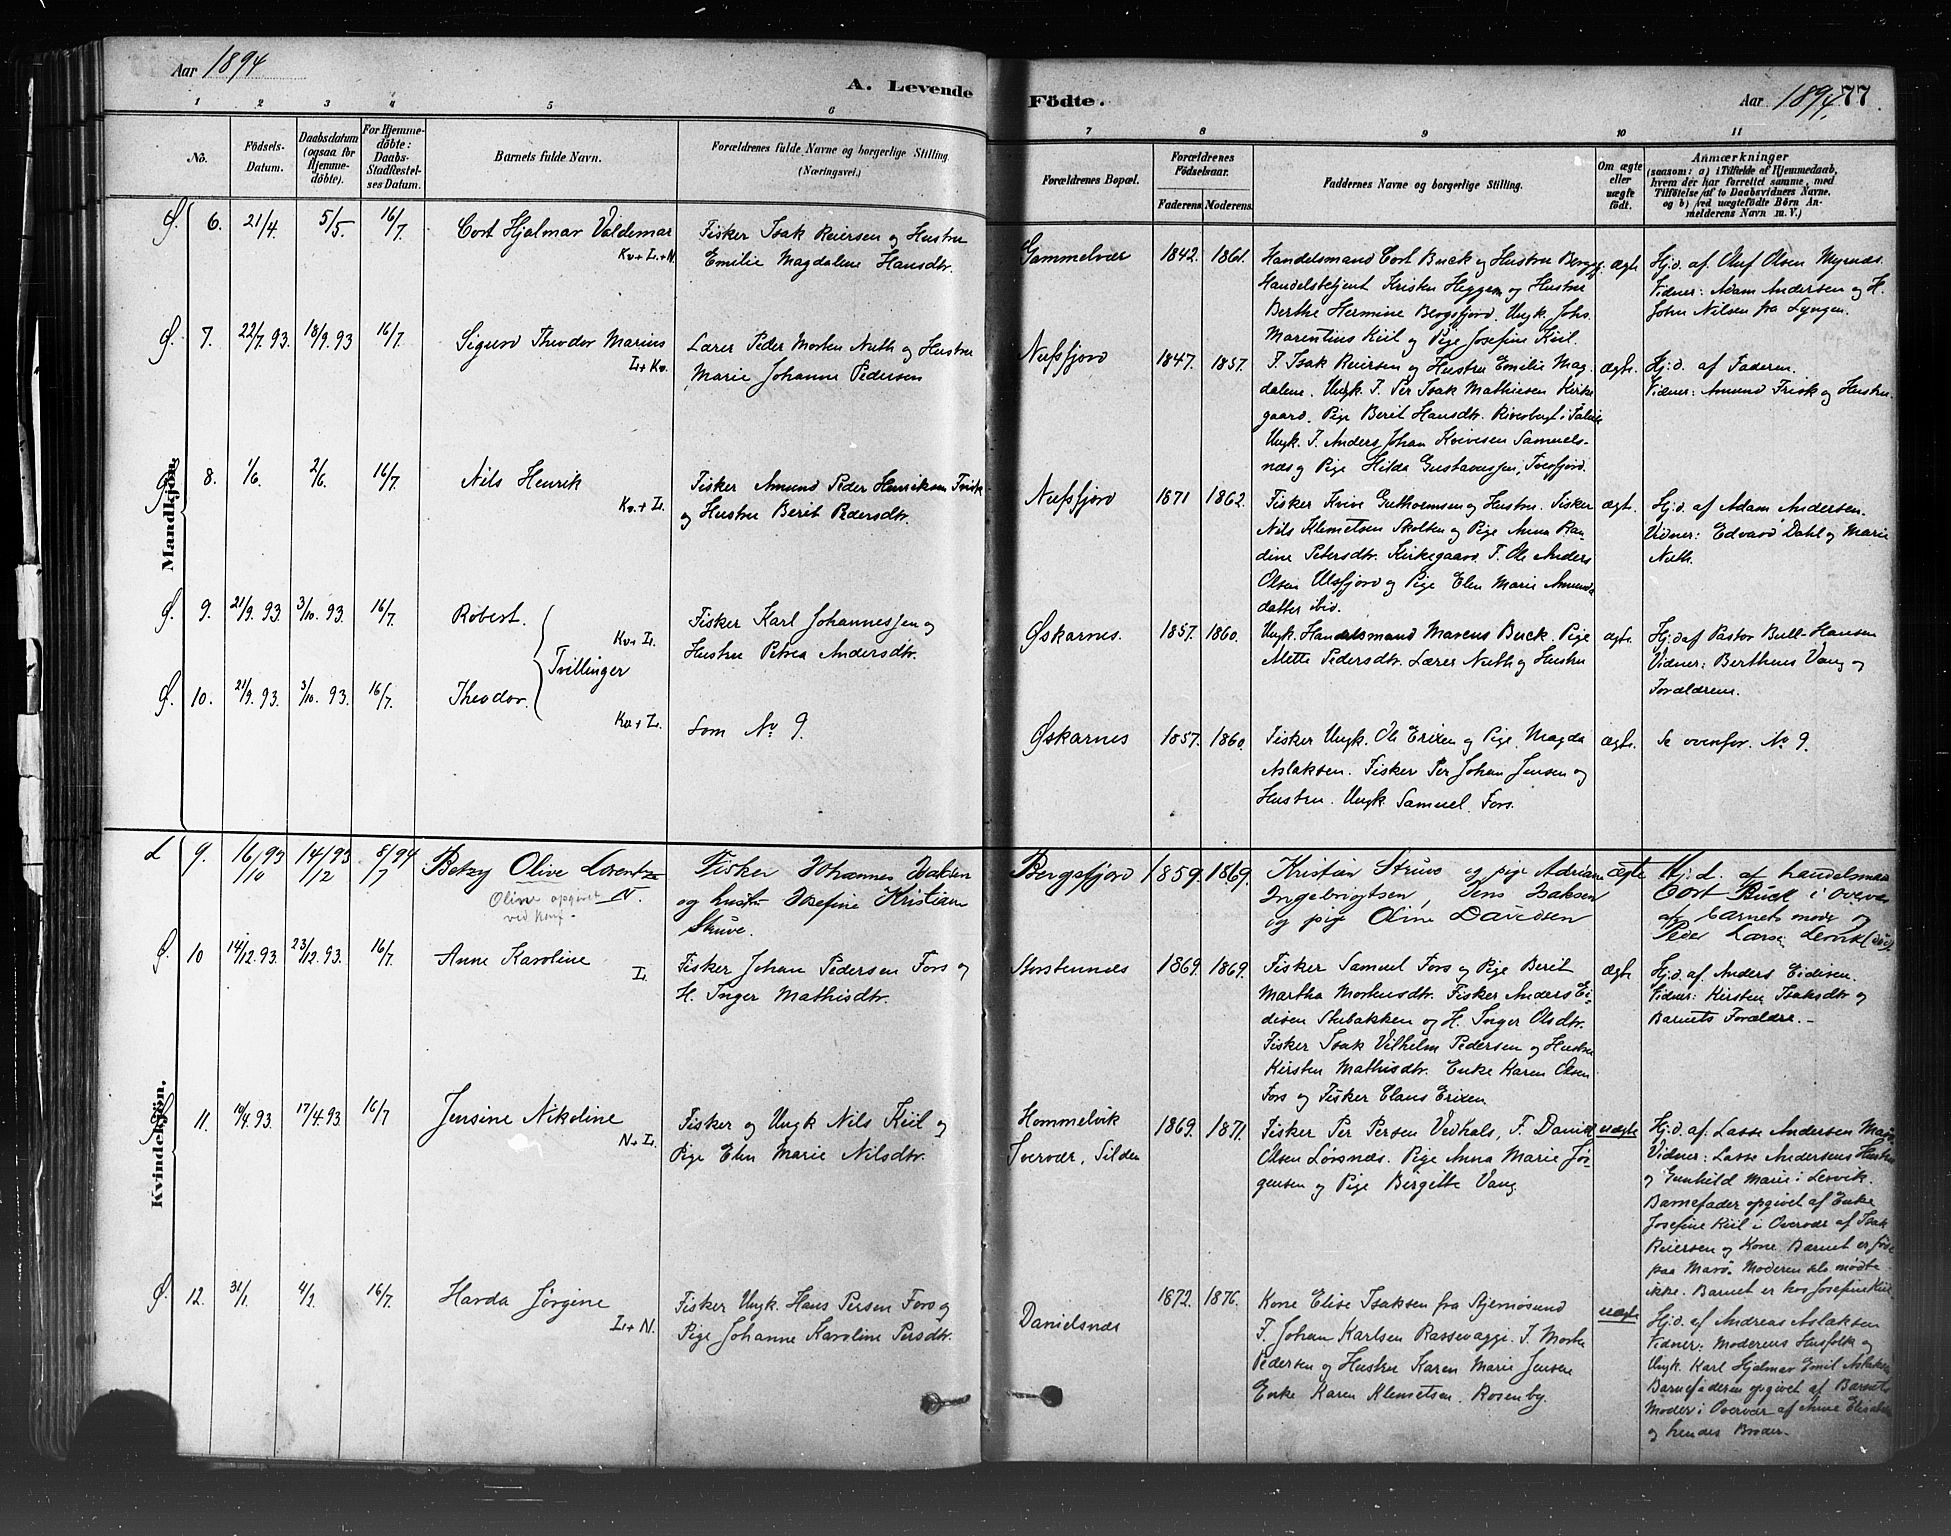 Aar 1894
A. Levende
Födte.
Aar 1894.
77
1 2 3 4 5 6 7 8 9 10 11
Nö.
Födsels-
Datum.
Daabsdatum
(ogsaa för
Hjemme-
döbte).
For Hjemme-
döbte:
Daabs-
Stadfæstel-
ses Datum.
Barnets fulde Navn.
Forældrenes fulde Navne og borgerlige Stilling.
(Næringsvei.)
Forældrenes Bopæl.
Forældrenes
Födselsaar.
Faderens. Moderens.
Faddernes Navne og borgerlige Stilling.
Om ægte
eller
uægte
födt.
Anmærkninger
(saasom: a) i Tilfælde af Hjemmedaab,
hvem der har forrettet samme, med
Tilföielse af to Daabsvidners Navne,
og b) ved uægtefödte Börn An-
melderens Navn m. V.)
Mandkjön.
Ø. 6. 21/4. 5/5. 16/7. Cort Hjalmar Valdemar
Kv + L + N.
Fisker Isak Reiersen og Hustru
Emilie Magdalene Hansdtr.
Gammelvær 1842. 1861.
Handelsmand Cort Buck og Hustru
Handelsbetjent Kristen Heggen og Hustru
Berthe Hermine Bergsfjord. Ungk. Johs.
Marentius Kiil og Pige Josefine Kiil.
ægte
Hj.d. af Oluf Olsen Myrnes.
Vidner: Adam Andersen og H.
John Nilsen fra Lyngen.
Ø. 7. 22/7. 93. 18/9. 93 16/7. Sigurd Theodor Marius
L + Kv.
Lærer Peder Morten Nuth og Hustru
Marie Johanne Pedersen
Nufsfjord 1847. 1857.
F. Isak Reiersen og Hustru Emilie Mag-
dalene. Ungk. F. Per Isak Mathisen Kirke-
gaard. Pige Berit Hansdtr.
Ungk. F. Anders Johan Samuels-
næs og Pige Hilda Gustavussen,
ægte.
Hj.d. af Faderen.
Vidner: Amund Frisk og Hustru.
Ø. 8. 1/6. 2/6. 16/7. Nils Henrik
Kv. + L.
Fisker Amund Peder Henriksen Frisk
og Hustru Berit Pedersdtr.
Nufsfjord 1871 1862.
Fisker og Hustru. Fisker
Nils Klemetsen Skolten og Pige Anna Ran-
dine Petersdtr. Kirkegaard. F. Ole Anders
Olsen Ulsfjord og Pige Elen Marie Amunds-
datter ibid.
ægt.
Hj.d. af Adam Andersen.
Vidner: Edvard Dahl og Marie
Nuth.
Ø. 9. 21/9. 93. 3/10. 93. 16/7. Robert.
Kv + L.
Tvillinger
Fisker Karl Johannessen og
Hustru Petrea Andersdtr.
Øskarnes. 1857. 1860.
Ungk. Handelsmand Marens Buck. Pige
Mette Pedersdtr. Lærer Nuth og Hustru
ægte.
Hjd af Pastor Bull-Hansen
Vidner: Bertheus Vang og
Forældrene.
Ø. 10. 21/9. 93. 3/10. 93. 16/7. Theodor.
Kv + L.
Som No 9.
Øskarnes 1857. 1860.
Fisker Ungk. Ole Erixen og Pige Magda
Aslaksen. Fisker Per Johan Jensen og
Hustru. Ungk. Samuel Fors.
ægte.
Se ovenfor. No 9.
Kvindekjön.
L 9. 16/10 93 14/12 93 8/7 94 Betzy Olive Lorentze
N.
Olive opgivet
ved Konf.
Fisker Johannes Isaksen
og hustru Josefine Kristiane
Struve.
Bergsfjord 1859. 1869.
Kristian Struve og pige Adriane
Ingebrigtsen, Jens Isaksen
og pige Oline Davidsen
ægte
Hj.d. af handelsmand
Cort Buck i overvær
af barnets moder og
Peder Larsen Lervik
Ø. 10 14/12. 93. 23/12. 93. 16/7. Anne Karoline
L.
Fisker Johan Pedersen Fors og
H. Inger Mathisdtr.
Storstennæs 1869. 1869.
Fisker Samuel Fors og Pige Berit
Martha Mortensdtr. Fisker Anders Ei-
disen Stubakken og H. Inger Olsdtr.
Fisker Isak Vilhelm Pedersen og Hustru
Kirsten Mathisdtr. Enke Karen Olsen
Fors og Fisker Claus Erixen
ægte
Hj.d. af Anders Eidisen.
Vidner: Kirsten Isaksdtr og
Barnets Forældre. –
Ø. 11. 10/4. 93. 17/4. 93. 16/7 Jensine Nikoline
N + L.
Fisker og Ungk Nils Kiil og
Pige Elen Marie Nilsdtr.
Hommelvik
Sverver, Silden
1869. 1871.
Fisker Per Persen Vedhals, F. Daniel
Olsen Lørsnæs. Pige Anna Marie Jør-
gensen og Pige Bergitte Vang
uægte
Hj.d. af Lasse Andersen Marø.
Vidner: Lasse Andersens Hustru
og Gunhild Marie i Lervik.
Barnefader opgivet af Enke
Josefine Kiil i Overvær af Isak
Reiersen og Kone. Barnet er født
paa Marø. Moderen selv mødte
ikke. Barnet er hos Josefine Kiil.
Ø. 12. 31/1. 4/2. 16/7. Harda Jørgine
L + N.
Fisker Ungk. Hans Persen Fors og
Pige Johanne Karoline Persdtr.
Danielsnæs 1872. 1876.
Kone Elise Isaksen fra Stjernøsund
F. Johan Karlsen Rassevaggi. F. Morten
Pedersen og Hustru Karen Marie Jensen
Enke Karen Klemetsen. Rosenby.
uægte
Hj.d. af Andreas Aslaksen
Vidner: Moderens Husfolk og
Ungk. Karl Hjalmar Emil Aslaksen
Barnefaderen opgivet af Barnets
Moder i Overvær af Anne Elisabeth
og hendes Broder.